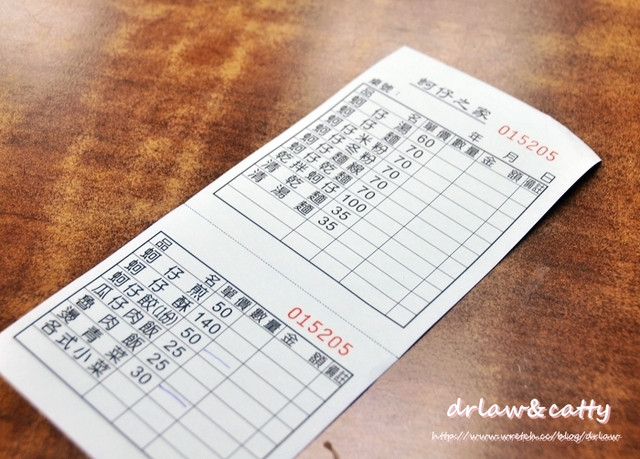 蚵仔之家
編號： 年 月 日
015205
品名 單價 數量 金額 備註
蚵仔湯 60
蚵仔麵 70
蚵仔米粉 70
蚵仔冬粉 70
蚵仔麵線 70
蚵仔乾麵 70
乾拌蚵仔 100
清乾麵 35
清湯麵 35
015205
品名 單價 數量 金額 備註
蚵仔煎 50
蚵仔酥 140
蚵仔餃(1份) 50
瓜仔肉飯 25
魯肉飯 25
燙青菜 30
各式小菜
drlaw&catty
http://www.wretch.cc/blog/drlaw